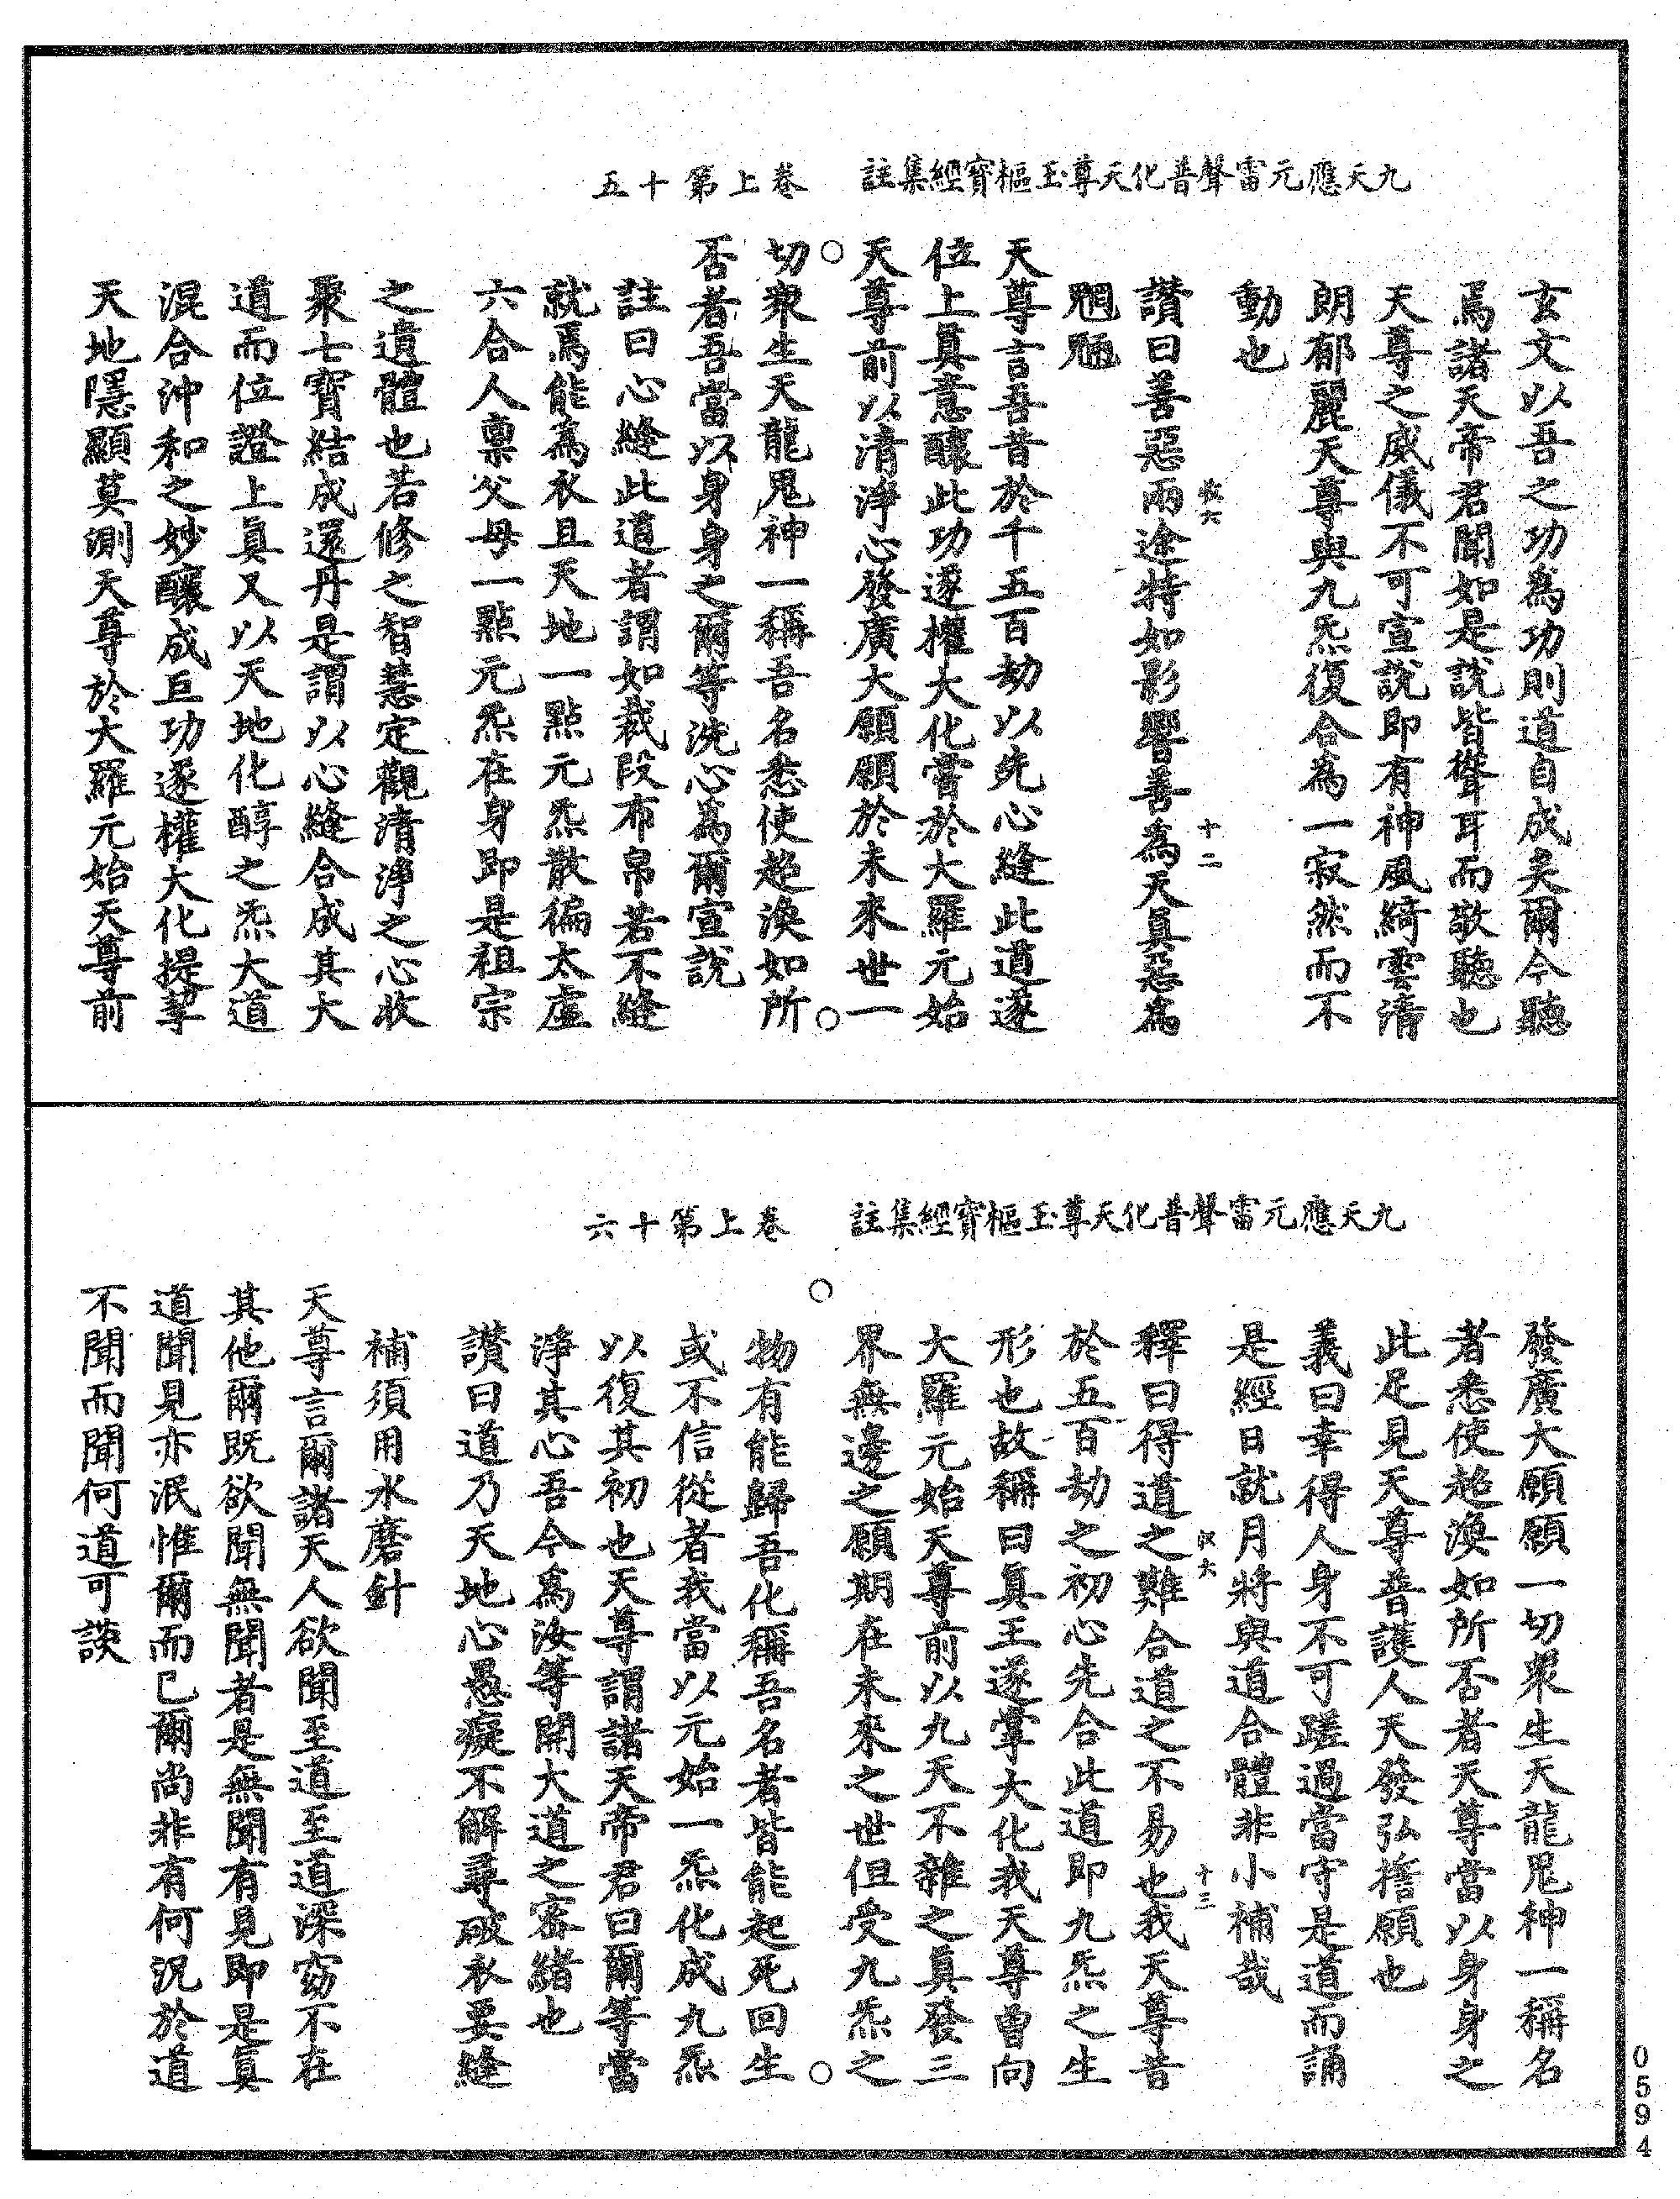 九天應元雷聲普化天尊玉樞寶經集註　卷上第十五
玄文以吾之功為功則道自成矣爾今聽
焉諸天帝君聞如是說皆聳耳而敬聽也
天尊之威儀不可宣說即有神風綺雲清
朗郁麗天尊與九炁復合為一寂然而不
動也
讚曰善惡兩途特如影響善為天真惡為
魍魎
十二
天尊言吾昔於千五百劫以先心縫此道遂
位上真意釀此功遂權大化嘗於大羅元始
天尊前以清淨心發廣大願願於未來世一
切眾生天龍鬼神一稱吾名悉使超渙如所
否者吾當以身身之爾等洗心為爾宣說
註曰心縫此道者謂如裁段布帛若不縫
就焉能為衣且天地一點元炁散徧太虛
六合人稟父母一點元炁在身即是祖宗
之遺體也若修之智慧定觀清淨之心收
聚七寶結成還丹是謂以心縫合成其大
道而位證上真又以天地化醇之炁大道
混合沖和之妙釀成巨功遂權大化提挈
天地隱顯莫測天尊於大羅元始天尊前
九天應元雷聲普化天尊玉樞寶經集註　卷上第十六
發廣大願願一切眾生天龍鬼神一稱名
者悉使超渙如所否者天尊當以身身之
此足見天尊普護人天發弘擔願也
義曰幸得人身不可蹉過當守是道而誦
是經日就月將與道合體非小補哉
十三
釋曰得道之難合道之不易也我天尊昔
於五百劫之初心先合此道即九炁之生
形也故稱曰真王遂掌大化我天尊曾向
大羅元始天尊前以九天不雜之真發三
界無邊之願期在未來之世但受九炁之
物有能歸吾化稱吾名者皆能起死回生
或不信從者我當以元始一炁化成九炁
以復其初也天尊謂諸天帝君曰爾等當
淨其心吾今為汝等開大道之密緒也
讚曰道乃天地心愚癡不解尋破衣要縫
補須用水磨針
天尊言爾諸天人欲聞至道至道深窈不在
其他爾既欲聞無聞者是無聞有見即是真
道聞見亦泯惟爾而已爾尚非有何況於道
不聞而聞何道可談
0594